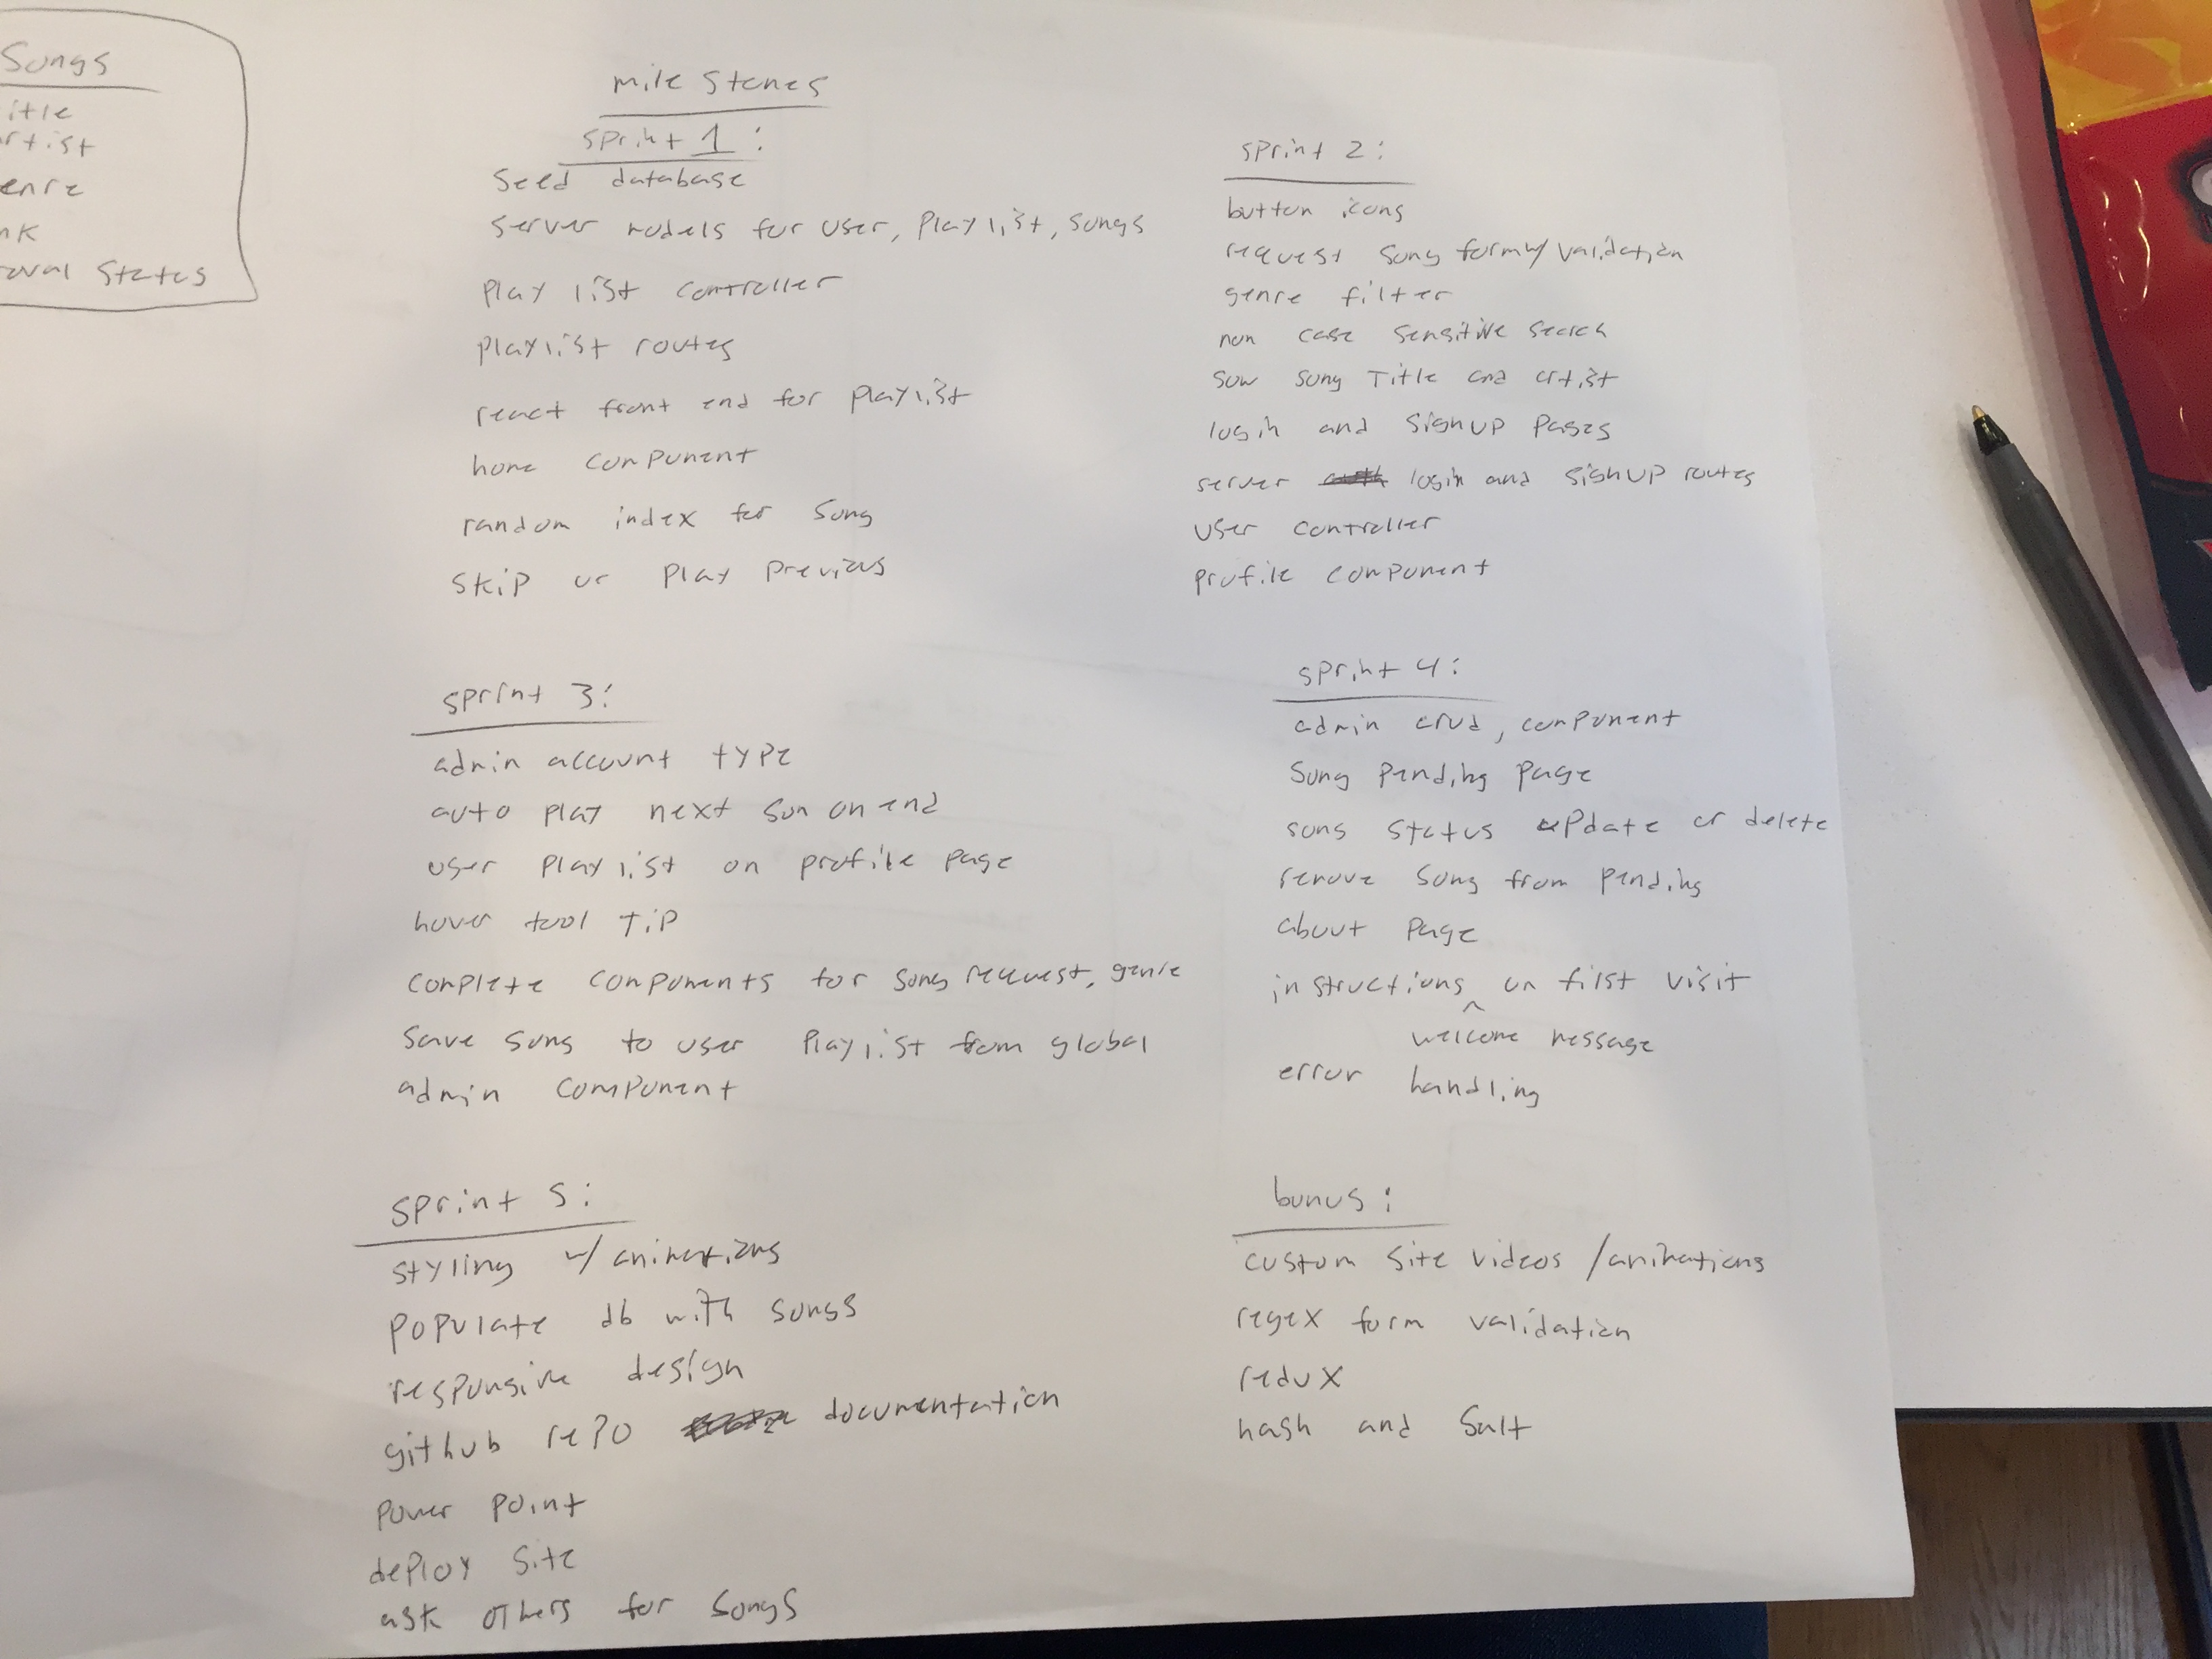 Songs
itle
rtist
enre
nk
roval Status
mile stones
sprint 1:
seed database
server models for user, playlist, songs
play list controller
playlist routes
react front end for playlist
home component
random index for song
skip or play previous
sprint 2:
button icons
request song form w/ validation
genre filter
non case sensitive search
sow song Title and artist
login and signup pages
server login and signup routes
user controller
profile component
sprint 3:
admin account type
auto play next son on end
user playlist on profile page
hover tool tip
complete components for song request, genre
save song to user playlist from global
admin component
sprint 4:
admin crud, component
song pending page
song status update or delete
remove song from pending
about page
instructions ^ on first visit
welcome message
error handling
sprint 5:
styling w/ animations
populate db with songs
responsive design
github repo documentation
power point
deploy site
ask others for songs
bonus:
custom site videos / animations
regex form validation
redux
hash and salt